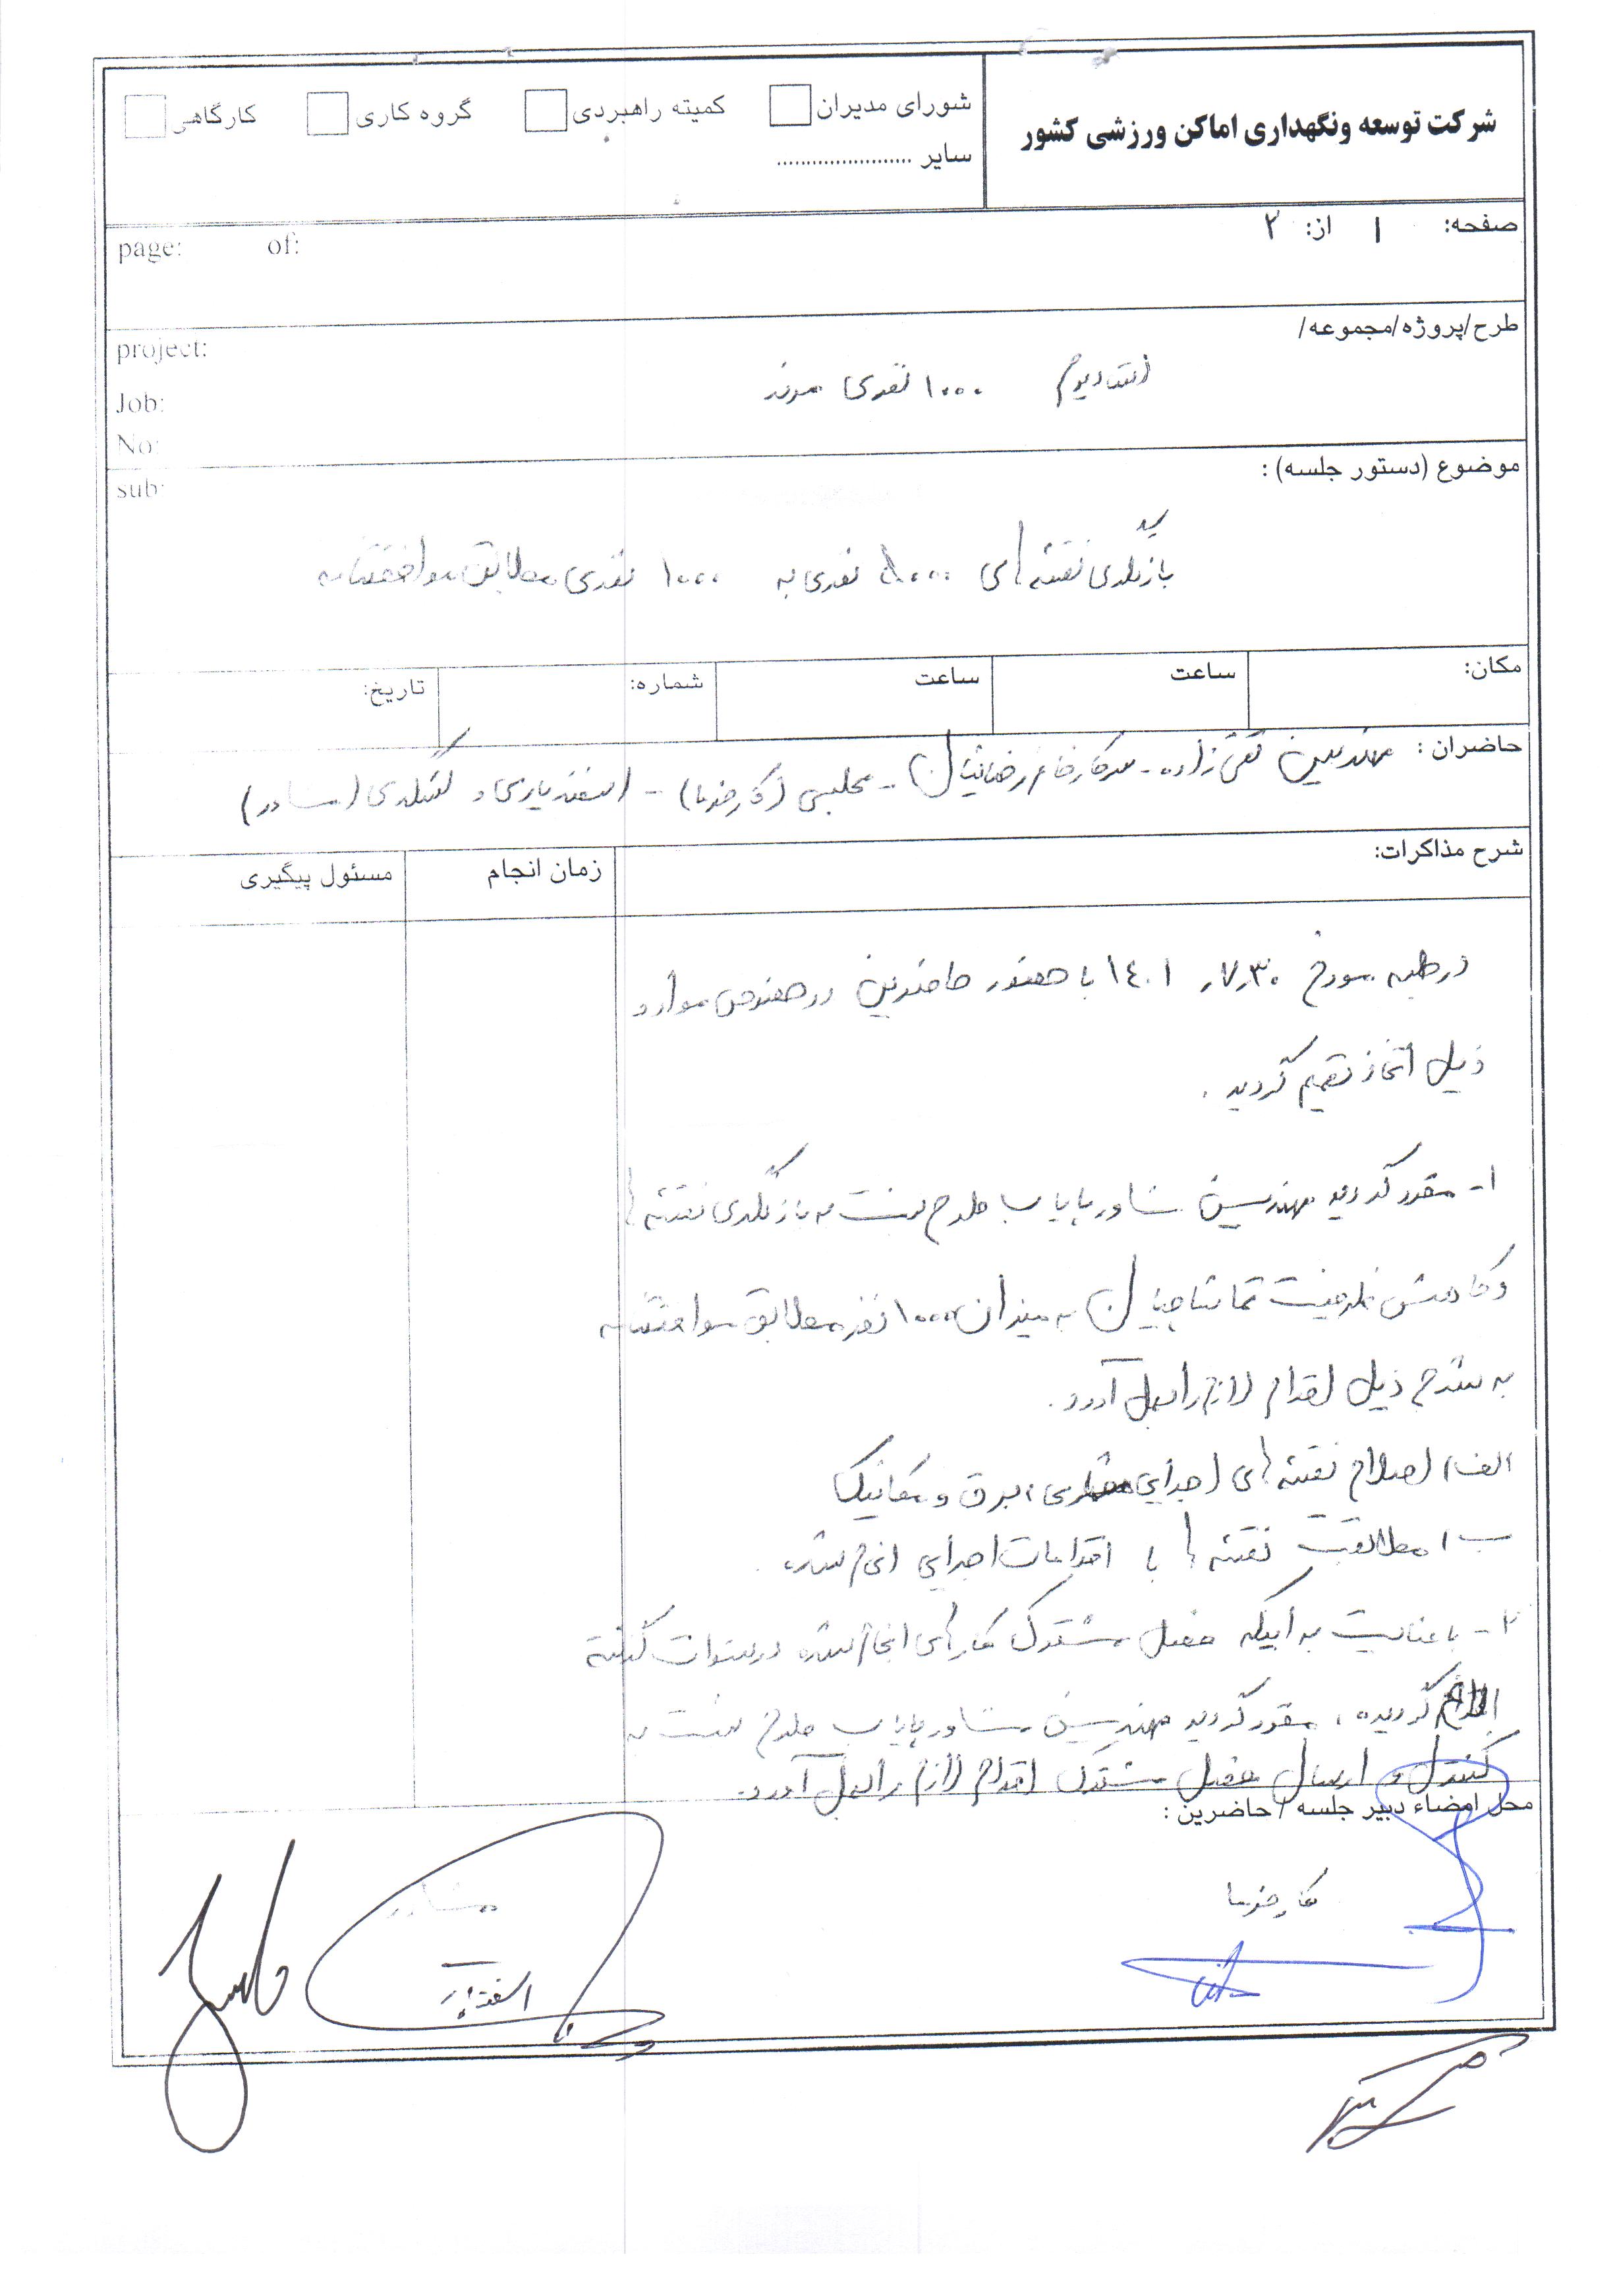 شرکت توسعه ونگهداری اماکن ورزشی کشور
شورای مدیران کمیته راهبردی گروه کاری کارگاهی
سایر .......................
صفحه: ۱ از: ۲
page: of:
طرح/پروژه/مجموعه/
project:
استادیوم ۱۰۰۰ نفری مرند
Job:
No:
موضوع (دستور جلسه) :
sub:
بازنگری نقشه های ۵۰۰۰ نفری به ۱۰۰۰ نفری مطابق موافقتنامه
مکان: ساعت ساعت شماره: تاریخ:
حاضران : مهندسین تقی زاده - سرکار خانم رضائیان - مجلسی (کارفرما) - اسفندیاری و (مشاور)
شرح مذاکرات: زمان انجام مسئول پیگیری
در جلسه مورخ ۱۴۰۱/۷/۳۰ با حضور حاضرین در خصوص موارد
ذیل اتخاذ تصمیم گردید .
۱- مقرر گردید مهندسین مشاور پایاب طرح نسبت به بازنگری نقشه ها
و کاهش ظرفیت تماشاچیان به میزان ۱۰۰۰ نفر مطابق موافقتنامه
به شرح ذیل اقدام لازم را بعمل آورد .
الف) اصلاح نقشه های اجرایی معماری، برق و مکانیک
ب) مطابقت نقشه ها با اقدامات اجرایی انجام شده .
۲- با عنایت به اینکه فصل مشترک کارهای انجام شده در سنوات گذشته
گردیده ، مقرر گردید مهندسین مشاور پایاب طرح نسبت به
کنترل و ارسال فصل مشترک اقدام لازم را بعمل آورد.
محل امضاء دبیر جلسه / حاضرین :
کارفرما مشاور